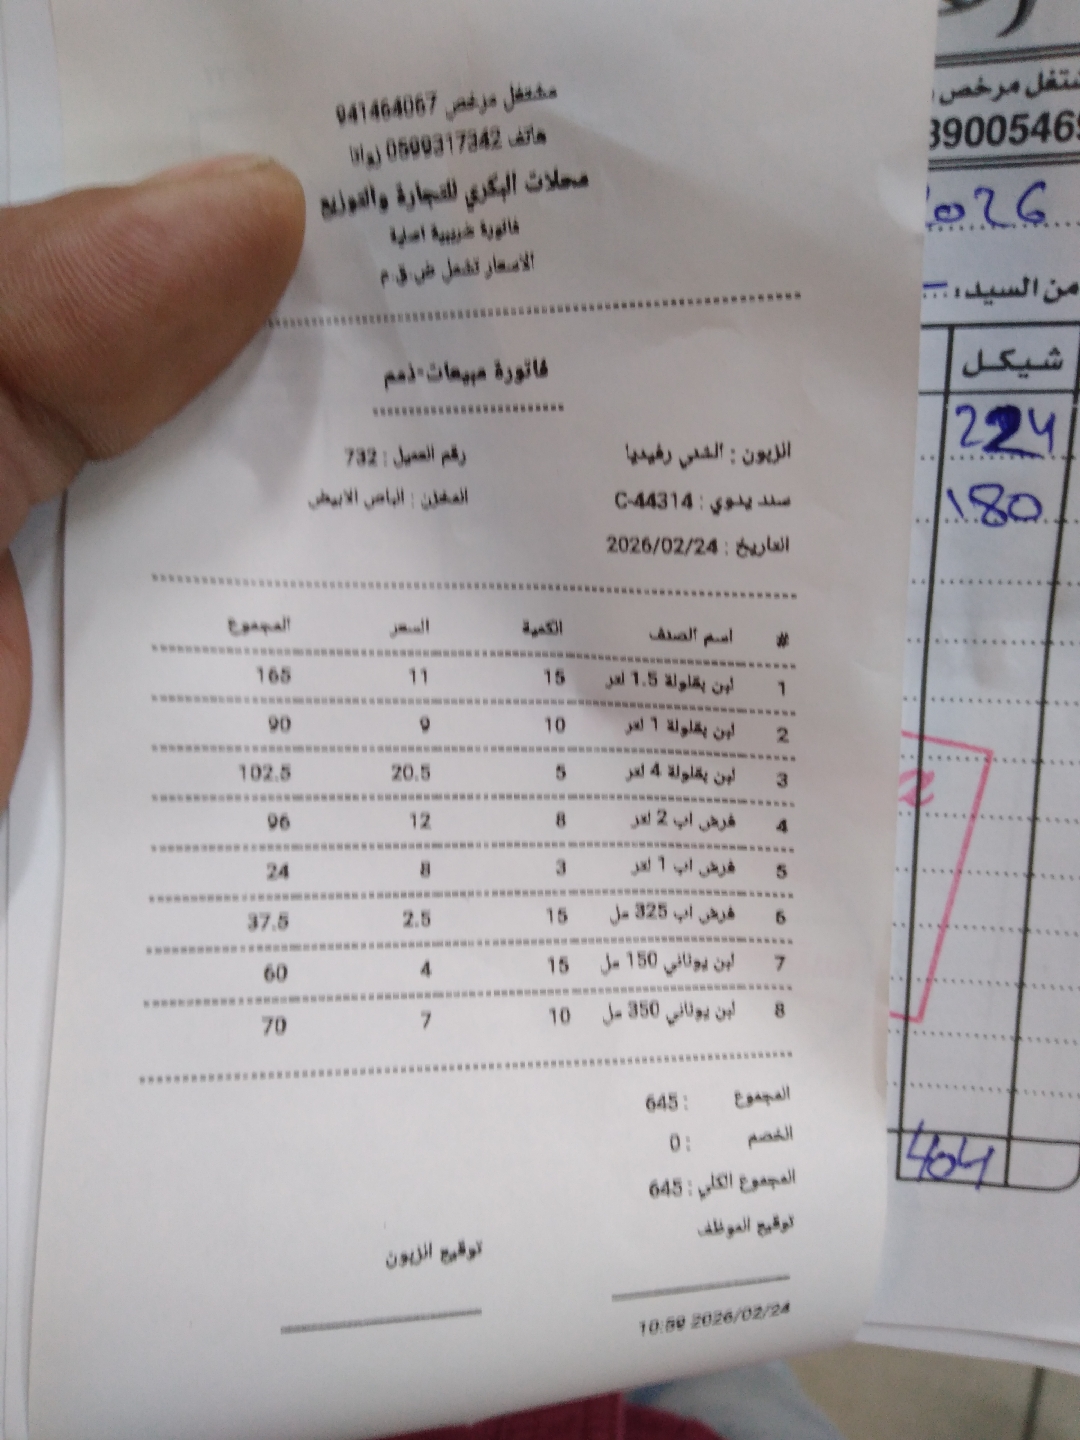 مشتغل مرخص 941464067
هاتف 0599317342
محلات البكري للتجارة والتوزيع
فاتورة ضريبية اصلية
الاسعار تشمل ض.ق.م
فاتورة مبيعات-ذمم
الزبون : الشني رفيديا رقم العميل : 732
سند يدوي : C-44314 المخزن : الباص الابيض
التاريخ : 2026/02/24
# اسم الصنف الكمية السعر المجموع
1 لبن بقلولة 1.5 لتر 15 11 165
2 لبن بقلولة 1 لتر 10 9 90
3 لبن بقلولة 4 لتر 5 20.5 102.5
4 فرش اب 2 لتر 8 12 96
5 فرش اب 1 لتر 3 8 24
6 فرش اب 325 مل 15 2.5 37.5
7 لبن يوناني 150 مل 15 4 60
8 لبن يوناني 350 مل 10 7 70
المجموع : 645
الخصم : 0
المجموع الكلي : 645
توقيع الموظف
توقيع الزبون
10:59 2026/02/24
مشتغل مرخص
39005469
2026
من السيد:
شيكل
224
180
404